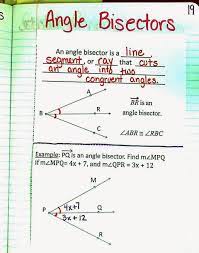 19
Angle Bisectors
An angle bisector is a line
segment, or ray that cuts
an angle into two
congruent angles.
A
B
R
C
BR is an
angle bisector.
∠ABR ≅ ∠RBC
Example: PQ is an angle bisector. Find m∠MPQ
If m∠MPQ= 4x + 7, and m∠QPR = 3x + 12
M
4x+7
P
Q
3x + 12
R